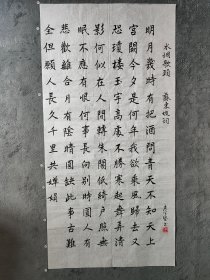 水調歌頭 蘇東坡詞
明月幾時有把酒問青天不知天上
宮闕今夕是何年我欲乘風歸去又
恐瓊樓玉宇高處不勝寒起舞弄清
影何似在人間轉朱閣低綺戶照無
眠不應有恨何事長向別時圓人有
悲歡離合月有陰晴圓缺此事古難
全但願人長久千里共嬋娟